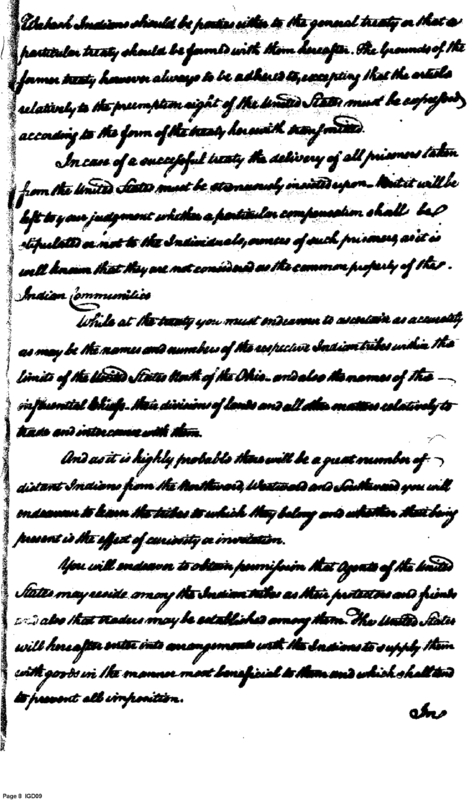 Wabash Indians should be parties either to the general treaty or that a
particular treaty should be formed with them hereafter. The Grounds of the
former treaty however always to be adhered to, excepting that the article
relatively to the preemption right of the United States must be expressed
according to the form of the treaty herewith transmitted.
In case of a successful treaty the delivery of all prisoners taken
from the United States must be strenuously insisted upon – But it will be
left to your judgment whether a particular compensation shall be
stipulated or not to the Individuals, owners of such prisoners, as it is
well known that they are not considered as the common property of the
Indian Communities
While at the treaty you must endeavor to ascertain as accurately
as may be the names and numbers of the respective Indian tribes within the
limits of the United States North of the Ohio – and also the names of the
influential Chiefs – their divisions of lands and all other matters relatively to
trade and intercourse with them.
And as it is highly probable there will be a great number of
distant Indians from the Northward, Westward and Southward you will
endeavor to learn the tribes to which they belong and whether their being
present is the effect of curiosity or invitation.
You will endeavor to obtain permission that Agents of the United
States may reside among the Indian tribes as their protectors and friends
and also that traders may be established among them. The United States
will hereafter enter into arrangements with the Indians to supply them
with goods in the manner most beneficial to them and which shall tend
to prevent all imposition.
In
Page 8 IGD09